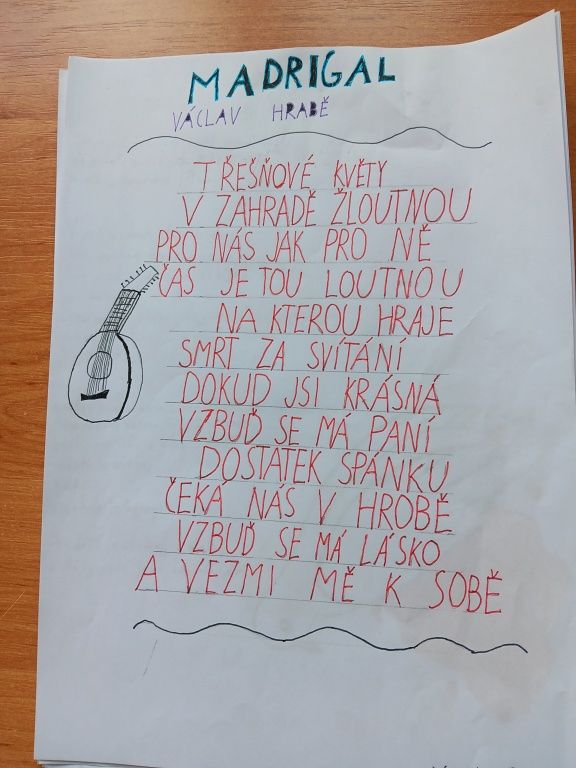 MADRIGAL
VÁCLAV HRABĚ
TŘEŠŇOVÉ KVĚTY
V ZAHRADĚ ŽLOUTNOU
PRO NÁS JAK PRO NĚ
ČAS JE TOU LOUTNOU
NA KTEROU HRAJE
SMRT ZA SVÍTÁNÍ
DOKUD JSI KRÁSNÁ
VZBUĎ SE MÁ PANÍ
DOSTATEK SPÁNKU
ČEKÁ NÁS V HROBĚ
VZBUĎ SE MÁ LÁSKO
A VEZMI MĚ K SOBĚ